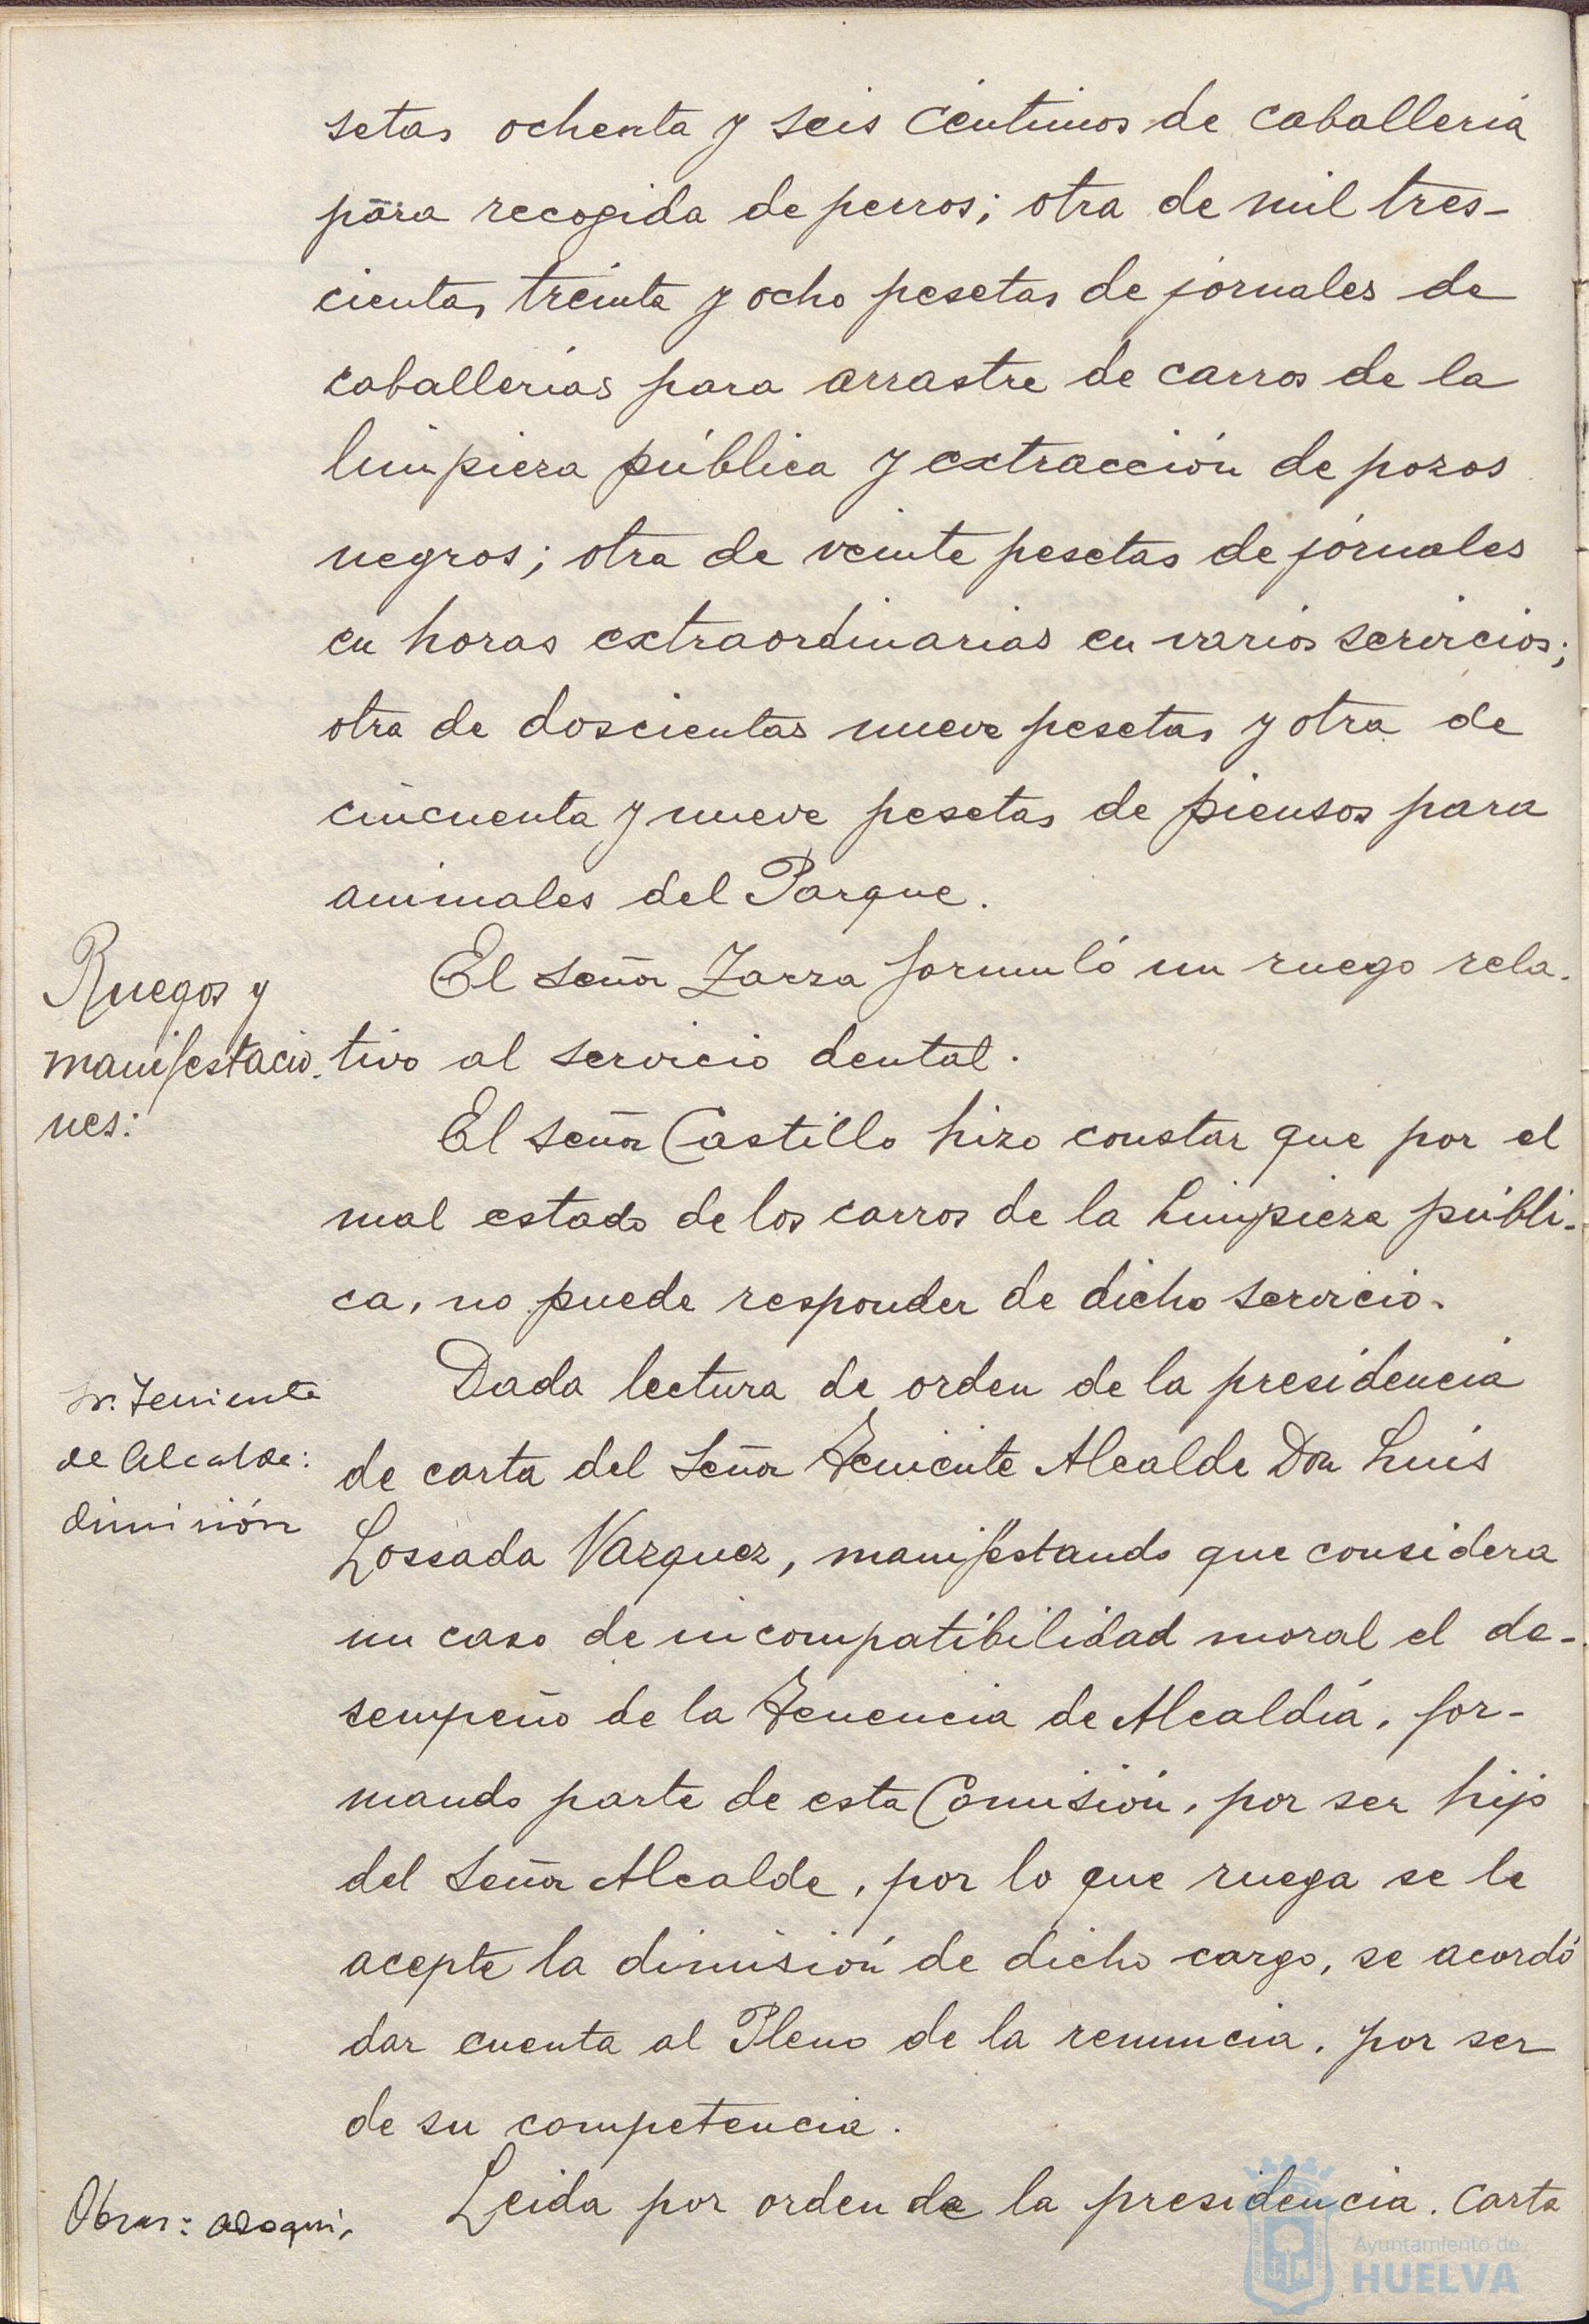 setas ochenta y seis céntimos de caballería
para recogida de perros; otra de mil tres-
cientas treinta y ocho pesetas de jornales de
caballerías para arrastre de carros de la
limpieza pública y extracción de pozos
negros; otra de veinte pesetas de jornales
en horas extraordinarias en varios servicios;
otra de doscientas nueve pesetas y otra de
cincuenta y nueve pesetas de piensos para
animales del Parque.
Ruegos y
manifestacio-
nes:
El señor Zarza formuló un ruego rela-
tivo al servicio dental.
El señor Castillo hizo constar que por el
mal estado de los carros de la limpieza públi-
ca, no puede responder de dicho servicio.
Sr. Teniente
de Alcalde:
dimisión
Dada lectura de orden de la presidencia
de carta del Señor Teniente Alcalde Don Luis
Lossada Vazquez, manifestando que considera
un caso de incompatibilidad moral el de-
sempeño de la Tenencia de Alcaldía, for-
mando parte de esta Comisión, por ser hijo
del Señor Alcalde, por lo que ruega se le
acepte la dimisión de dicho cargo, se acordó
dar cuenta al Pleno de la renuncia, por ser
de su competencia.
Obras: adoqui-
Leida por orden de la presidencia, carta
Ayuntamiento de
HUELVA